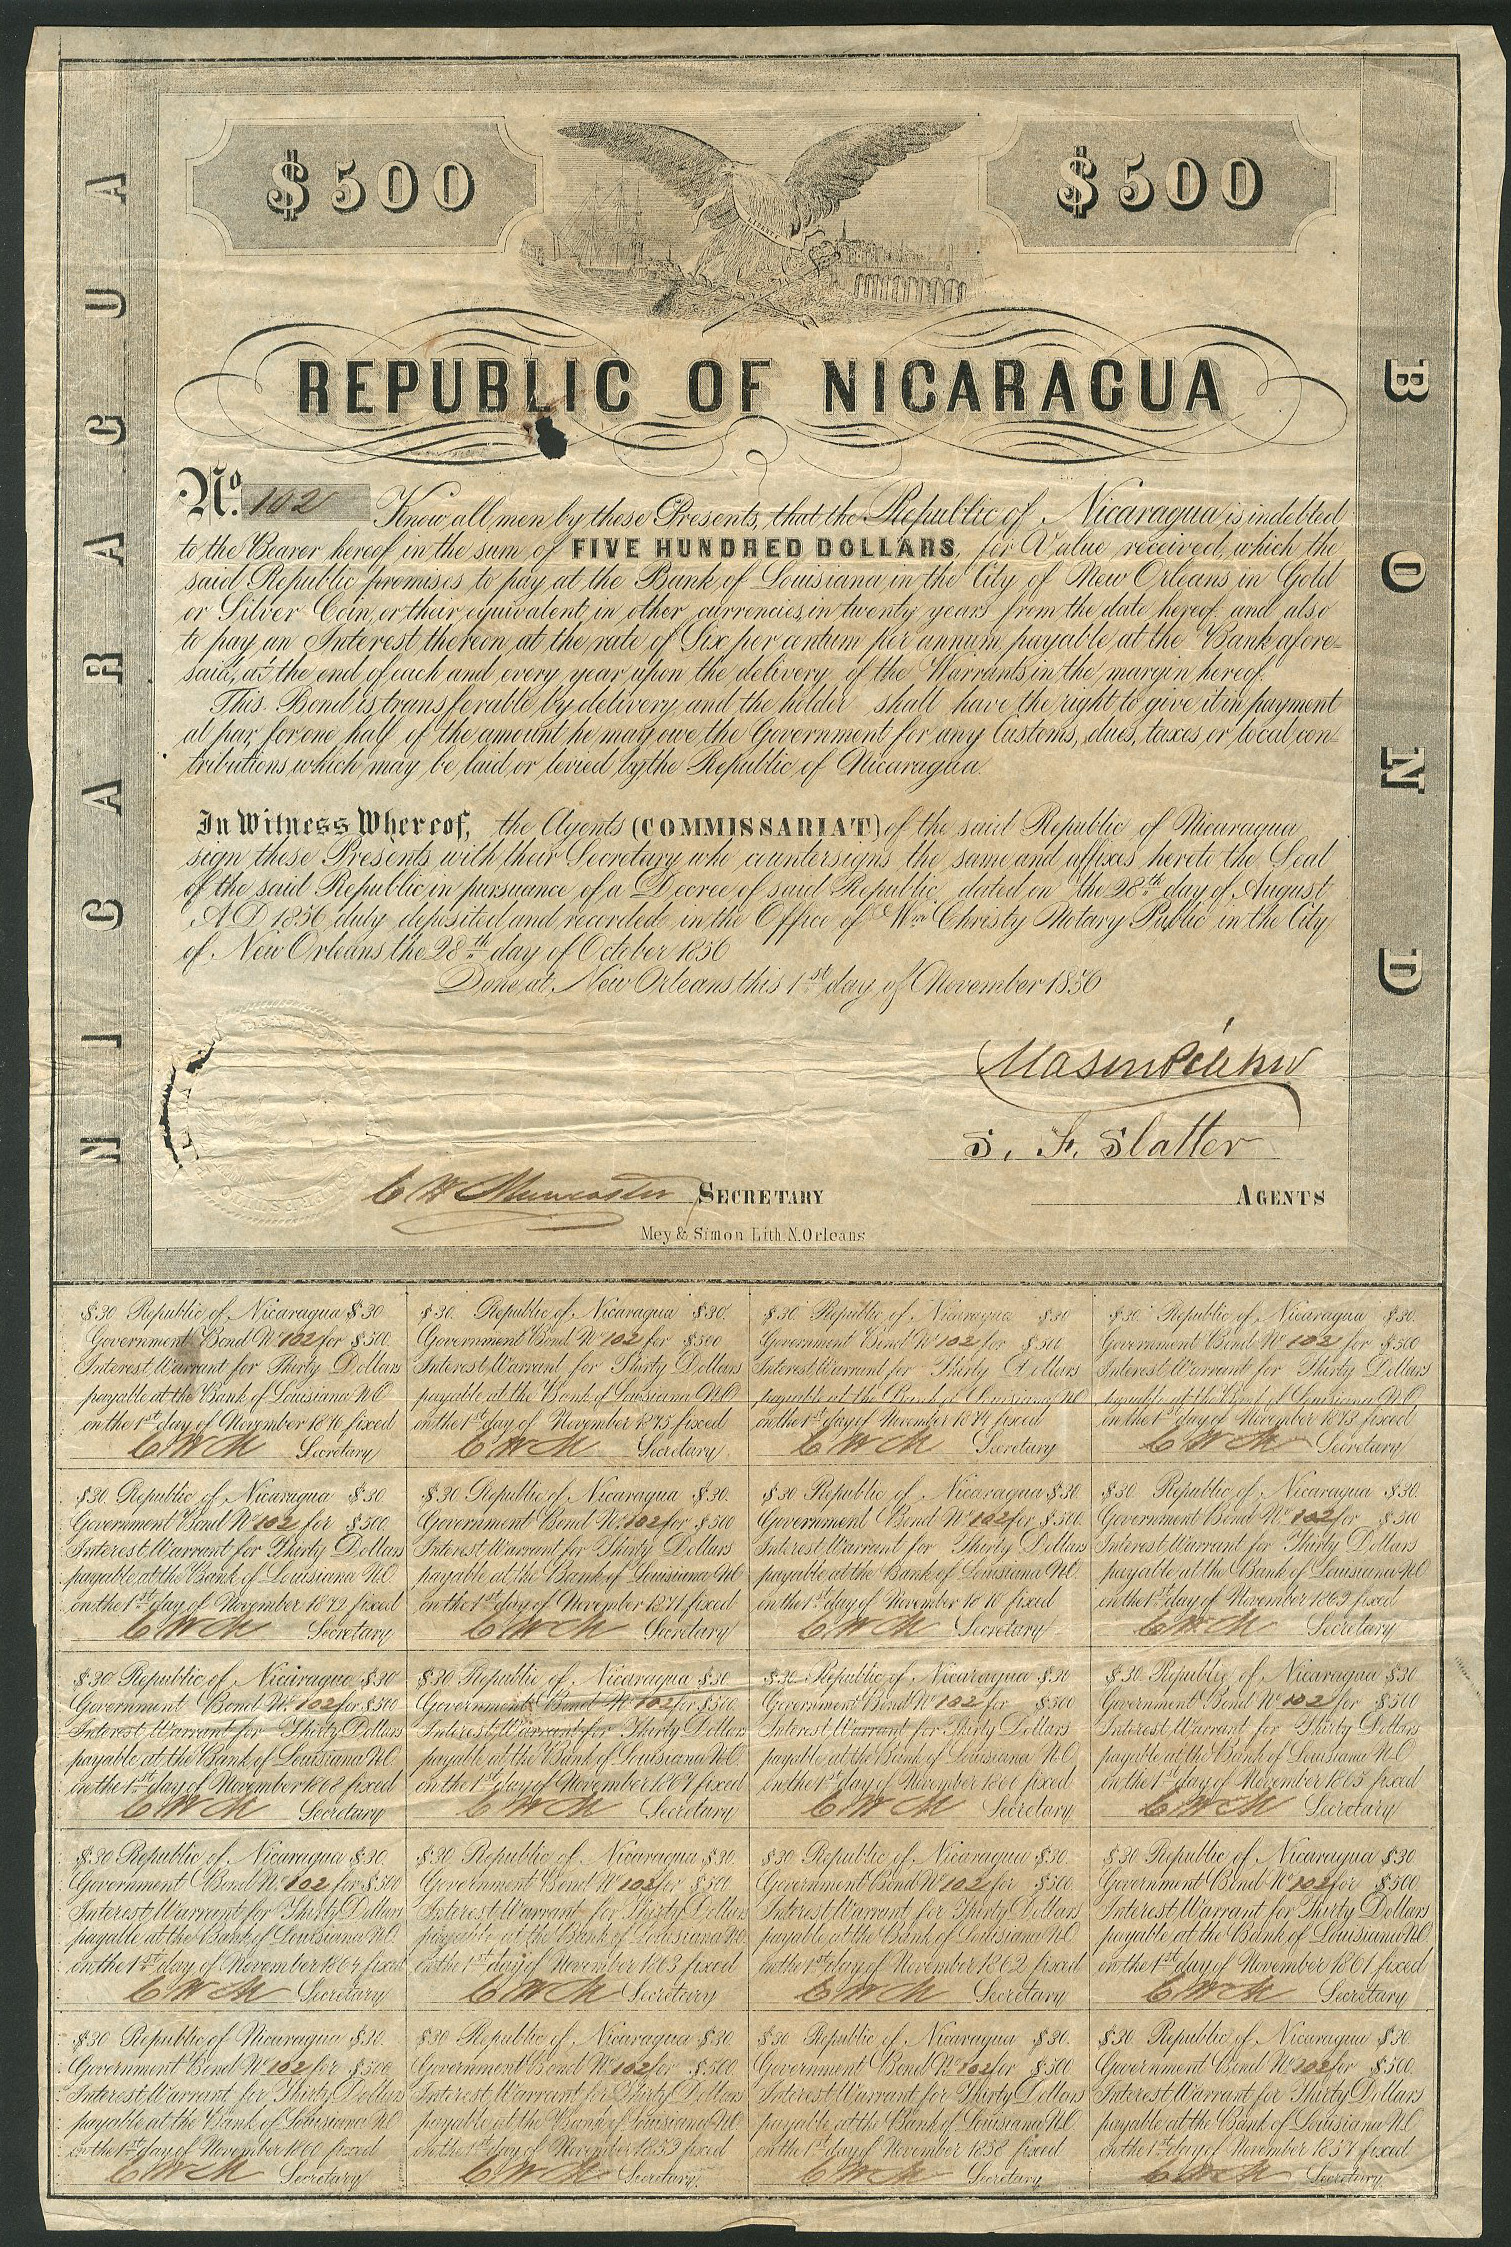 $500
$500
NICARAGUA
BOND
REPUBLIC OF NICARAGUA
No. 102 Know all men by these Presents, that the Republic of Nicaragua is indebted
to the Bearer hereof in the sum of FIVE HUNDRED DOLLARS, for Value received, which the
said Republic promises to pay at the Bank of Louisiana in the City of New Orleans in Gold
or Silver Coin, or their equivalent in other currencies, in twenty years from the date hereof and also
to pay an Interest thereon at the rate of Six per centum per annum, payable at the Bank afore=
said, at the end of each and every year upon the delivery of the Warrants in the margin hereof.
This Bond is transferable by delivery and the holder shall have the right to give it in payment
at par, for one half of the amount he may owe the Government for any Customs, dues, taxes, or local con=
tributions which may be laid or levied by the Republic of Nicaragua.
In Witness Whereof, the Agents (COMMISSARIAT) of the said Republic of Nicaragua
sign these Presents with their Secretary who countersigns the same and affixes hereto the Seal
of the said Republic in pursuance of a Decree of said Republic, dated on the 28th day of August
A.D. 1856 duly deposited and recorded in the Office of Wm Christy Notary Public in the City
of New Orleans the 28th day of October 1856
Done at New Orleans this 1st day of November 1856
Mason Pilcher
S. F. Slatter
C W Muncaster SECRETARY
AGENTS
Mey & Simon Lith. N. Orleans
$30 Republic of Nicaragua $30
Government Bond No 102 for $500
Interest Warrant for Thirty Dollars
payable at the Bank of Louisiana N.O
on the 1st day of November 1876 fixed
C W M Secretary
$30. Republic of Nicaragua $30.
Government Bond No 102 for $500
Interest Warrant for Thirty Dollars
payable at the Bank of Louisiana N.O
on the 1st day of November 1875 fixed
C W M Secretary
$30. Republic of Nicaragua $30
Government Bond No 102 for $500
Interest Warrant for Thirty Dollars
payable at the Bank of Louisiana N.O
on the 1st day of November 1874 fixed
C W M Secretary
$30. Republic of Nicaragua $30.
Government Bond No 102 for $500
Interest Warrant for Thirty Dollars
payable at the Bank of Louisiana N.O
on the 1st day of November 1873 fixed
C W M Secretary
$30. Republic of Nicaragua $30
Government Bond No 102 for $500.
Interest Warrant for Thirty Dollars
payable at the Bank of Louisiana N.O
on the 1st day of November 1872 fixed
C W M Secretary
$30 Republic of Nicaragua $30.
Government Bond No 102 for $500
Interest Warrant for Thirty Dollars
payable at the Bank of Louisiana N.O
on the 1st day of November 1871 fixed
C W M Secretary
$30 Republic of Nicaragua $30.
Government Bond No 102 for $500.
Interest Warrant for Thirty Dollars
payable at the Bank of Louisiana N.O.
on the 1st day of November 1870 fixed
C W M Secretary
$30 Republic of Nicaragua $30.
Government Bond No 102 for $500
Interest Warrant for Thirty Dollars
payable at the Bank of Louisiana N.O
on the 1st day of November 1869 fixed
C W M Secretary
$30 Republic of Nicaragua $30
Government Bond No 102 for $500
Interest Warrant for Thirty Dollars
payable at the Bank of Louisiana N.O
on the 1st day of November 1868 fixed
C W M Secretary
$30 Republic of Nicaragua $30
Government Bond No 102 for $500
Interest Warrant for Thirty Dollars
payable at the Bank of Louisiana N.O.
on the 1st day of November 1867 fixed
C W M Secretary
$30 Republic of Nicaragua $30
Government Bond No 102 for $500
Interest Warrant for Thirty Dollars
payable at the Bank of Louisiana N.O.
on the 1st day of November 1866 fixed
C W M Secretary
$30 Republic of Nicaragua $30
Government Bond No 102 for $500
Interest Warrant for Thirty Dollars
payable at the Bank of Louisiana N.O.
on the 1st day of November 1865 fixed
C W M Secretary
$30 Republic of Nicaragua $30.
Government Bond No 102 for $500
Interest Warrant for Thirty Dollars
payable at the Bank of Louisiana N.O.
on the 1st day of November 1864 fixed
C W M Secretary
$30 Republic of Nicaragua $30.
Government Bond No 102 for $500
Interest Warrant for Thirty Dollars
payable at the Bank of Louisiana N.O.
on the 1st day of November 1863 fixed
C W M Secretary
$30 Republic of Nicaragua $30.
Government Bond No 102 for $500
Interest Warrant for Thirty Dollars
payable at the Bank of Louisiana N.O.
on the 1st day of November 1862 fixed
C W M Secretary
$30 Republic of Nicaragua $30
Government Bond No 102 for $500
Interest Warrant for Thirty Dollars
payable at the Bank of Louisiana N.O.
on the 1st day of November 1861 fixed
C W M Secretary
$30 Republic of Nicaragua $30.
Government Bond No 102 for $500
Interest Warrant for Thirty Dollars
payable at the Bank of Louisiana N.O
on the 1st day of November 1860 fixed
C W M Secretary
$30 Republic of Nicaragua $30
Government Bond No 102 for $500
Interest Warrant for Thirty Dollars
payable at the Bank of Louisiana N.O.
on the 1st day of November 1859 fixed
C W M Secretary
$30 Republic of Nicaragua $30.
Government Bond No 102 for $500
Interest Warrant for Thirty Dollars
payable at the Bank of Louisiana N.O.
on the 1st day of November 1858 fixed
C W M Secretary
$30 Republic of Nicaragua $30.
Government Bond No 102 for $500.
Interest Warrant for Thirty Dollars
payable at the Bank of Louisiana N.O
on the 1st day of November 1857 fixed
C W M Secretary